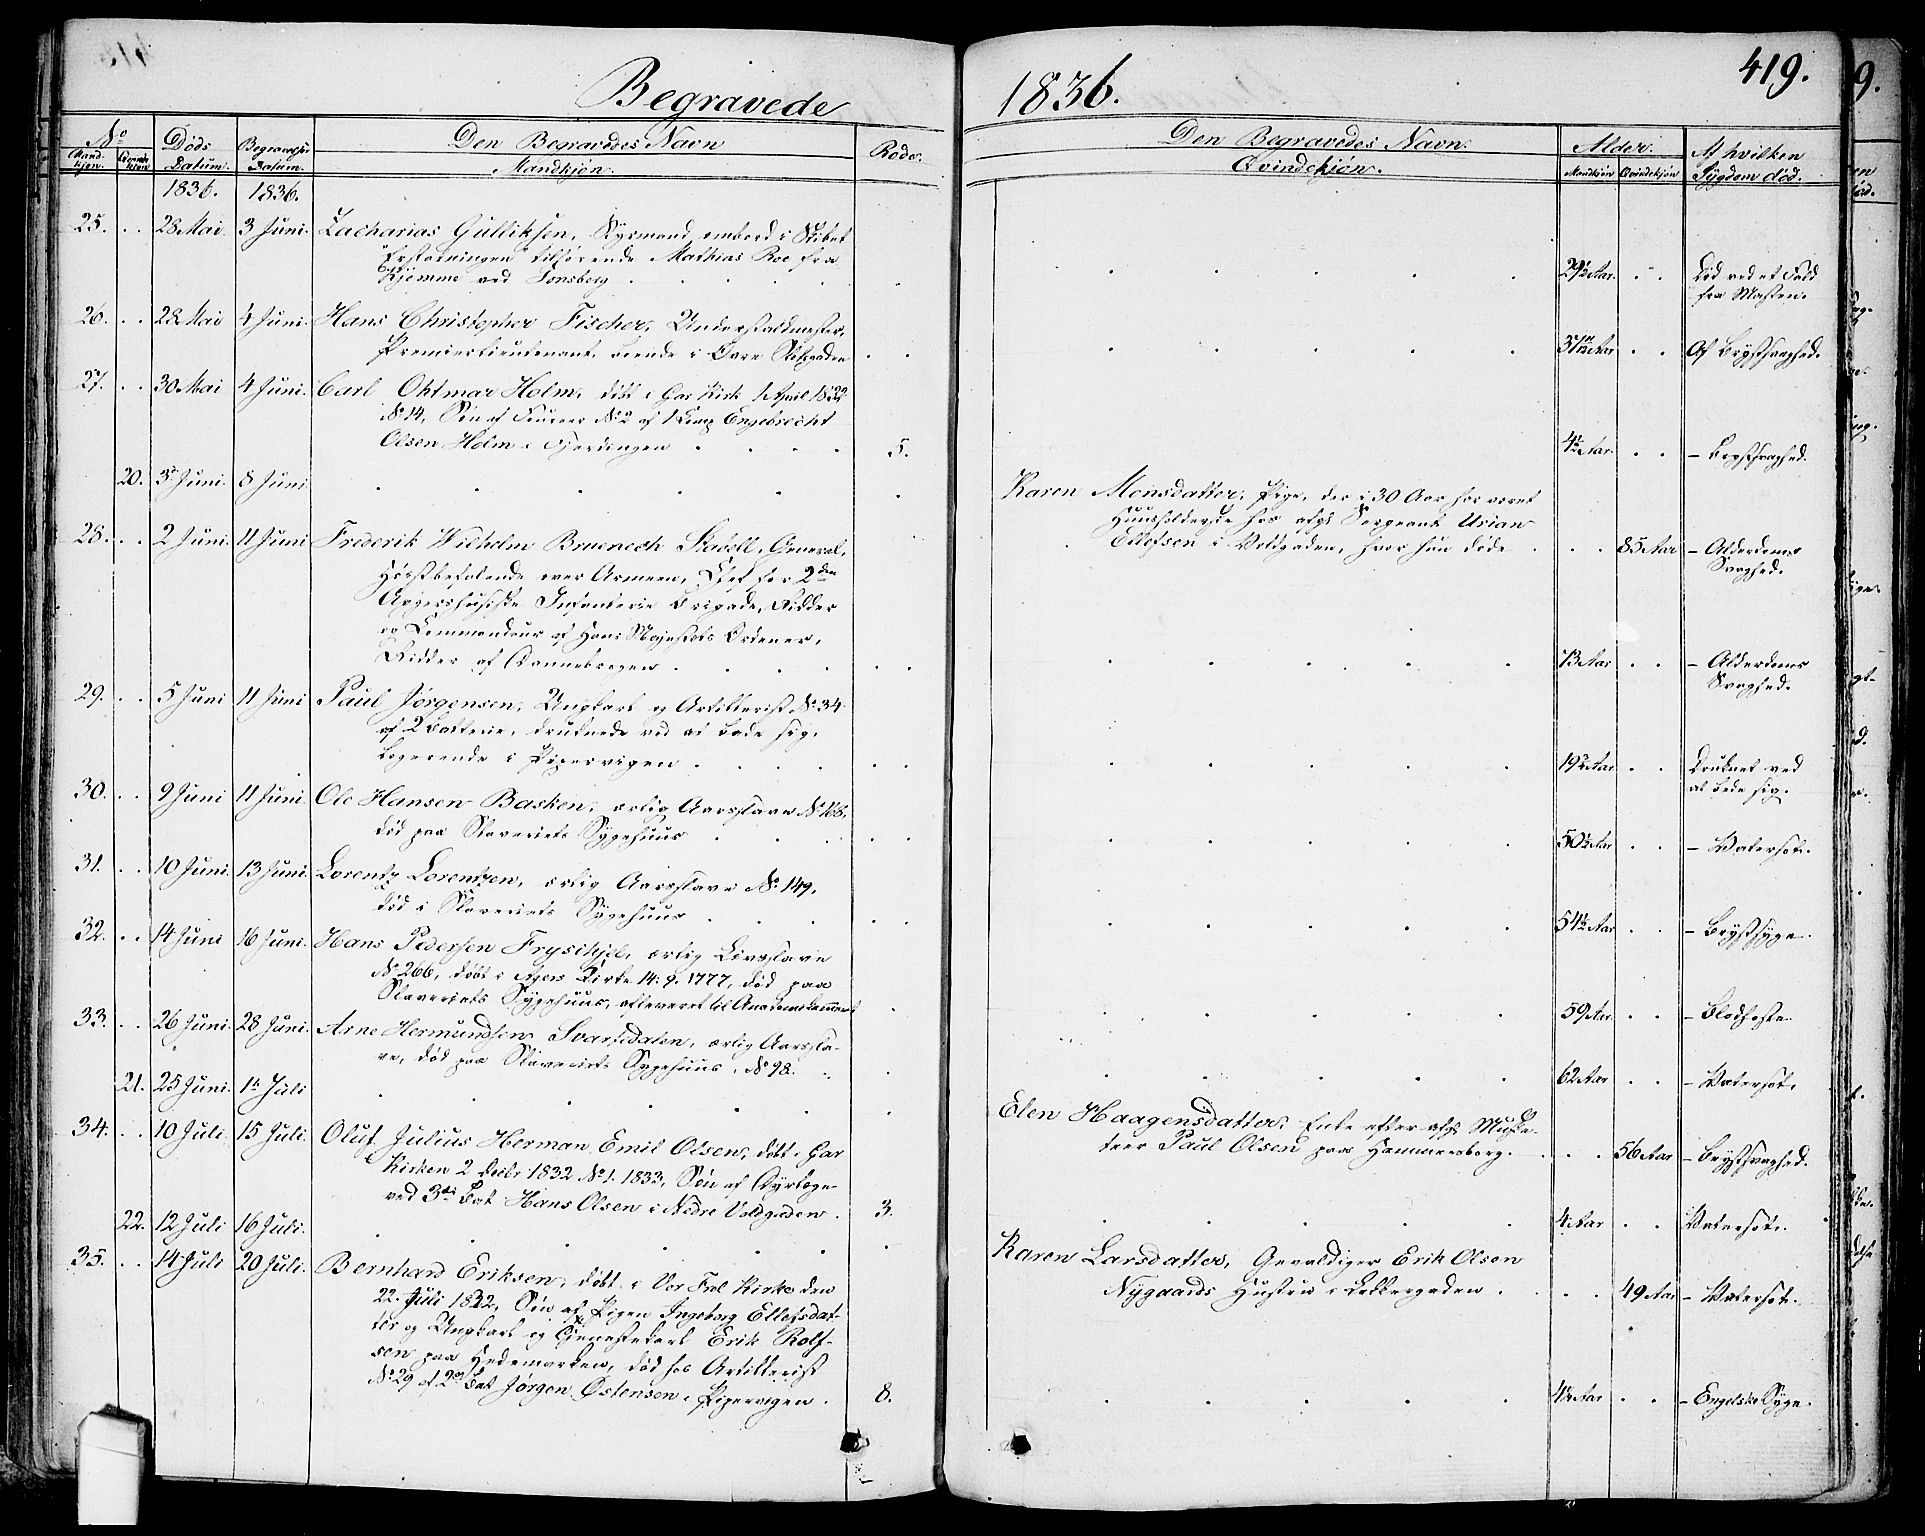 Begravede 1836. 419.
No Døds Begravelse Den Begravedes Navn Rode. Den Begravedes Navn. Alder. Af hvilken
Mandkjøn. Qvindekjøn Datum. Datum. Mandkjøn. Qvindekjøn. Mandkjøn Qvindekjøn Sygdom død.
1836. 1836.
25. 28 Mai 3 Juni. Zacharias Gulliksen, ombord i Skibet
tilhørende Mathias Roe fra
Kjømme ved Tønsberg 29½ Aar. Død ved et Fald
fra Masten.
26. 28 Mai 4 Juni. Hans Christopher Fischer, Understaldmester,
Premierlieutenant, boende i Øvre Slotsgaden Aar Af Brystsvaghed.
27. 30 Mai 4 Juni. Carl Ohtmar Holm, døbt i Gar Kirk 1 April 1832
No 14, Søn af No 2 af 1 Comp Engebrecht
Olsen Holm i Gjerdingen 5. Aar. – Brystsvaghed.
20. 3 Juni. 8 Juni Karen Monsdatter, Pige, der i 30 Aar har været
Huusholderske hos afgk Sergeant Urian
Ellefsen i Voldgaden, hvor hun døde 85 Aar – Alderdoms
Svaghed.
28. 2 Juni. 11 Juni Frederik Wilhelm Bruenech Stabell, General,
Høistbefalende over Armeen, Chef for 2den
Aggershusiske Infanterie Brigade, Ridder
og Commandeur af Hans Majestæts Ordener,
Ridder af Dannebrogen 73 Aar – Alderdoms
Svaghed.
29. 5 Juni 11 Juni Paul Jørgensen, Ungkarl og Artillerist No 34
af 2 Batterie, druknede ved at bade sig.
Logerende i Pipervigen 19½ Aar Druknet ved
at bade sig.
30. 9 Juni 11 Juni. Ole Hansen Basken, ærlig Aarsslave No 166,
død paa Slaveriets Sygehuus 50½ Aar – Vatersot.
31. 10 Juni. 13 Juni. Lorentz Lorentzen, ærlig Aarsslave No. 149,
død i Slaveriets Sygehuus 54½ Aar – Brystsyge.
32. 14 Juni 16 Juni. Hans Pedersen Frysihjel, ærlig Livsslave
No 266, døbt i Agers Kirke 14. 9. 1777, død paa
Slaveriets Sygehuus, afleveret til Anatomikammeret 59 Aar. – Blodhoste.
33. 26 Juni. 28 Juni. Arne Hermundsen Svartedalen, ærlig Aarssla-
ve, død paa Slaveriets Sygehuus, No 98. 62 Aar – Vatersot.
21. 25 Juni. 1 Juli Elen Haagensdatter, Enke efter afgk Muske-
teer Paul Olsen paa Hammersborg. 56 Aar – Brystsvaghed.
34. 10 Juli. 15 Juli. Oluf Julius Herman Emil Olsen, døbt i Gar
Kirken 2 Decbr 1832 No 1. 1833, Søn af Dyrlæge
ved 3die Bat Hans Olsen i Nedre Voldgaden. 3. 4 Aar Vatersot.
22. 12 Juli 16 Juli. Karen Larsdatter, Gevaldiger Erik Olsen
Nygaards Hustru i Lakkergaden. 49 Aar – Vatersot.
35. 14 Juli 20 Juli. Bernhard Eriksen, døbt i Vor Frel Kirke den
22. Juli 1832, Søn af Pigen Ingeborg Ellefsdat-
ter og Ungkarl og Tjenestekarl Erik Rolf-
sen paa Hedemarken, død hos Artillerist
No 29 af 2 Bat Jørgen Østensen i Pipervigen. 8. Aar – Engelske Syge.